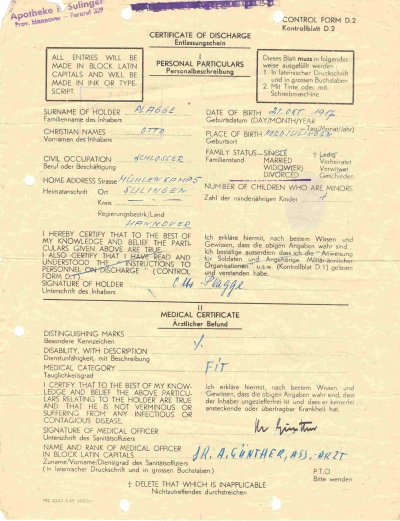 Apotheke in Sulingen
Prov. Hannover - Fernruf 329
CONTROL FORM D.2
Kontrollblatt D.2
CERTIFICATE OF DISCHARGE
Entlassungschein
ALL ENTRIES WILL BE
MADE IN BLOCK LATIN
CAPITALS AND WILL BE
MADE IN INK OR TYPE-
SCRIPT.
I
PERSONAL PARTICULARS
Personalbeschreibung
Dieses Blatt muss in folgender
weise ausgefüllt werden:
1. In lateinischer Druckschrift
und in grossen Buchstaben.
2. Mit Tinte oder mit
Schreibmaschine.
SURNAME OF HOLDER PLAGGE
Familienname des Inhabers
CHRISTIAN NAMES OTTO
Vornamen des Inhabers
CIVIL OCCUPATION SCHLOSSER
Beruf oder Beschäftigung
HOME ADDRESS Strasse MÜHLENKAMP 5
Heimatanschrift Ort SULINGEN
Kreis
Regierungsbezirk/Land
HANNOVER
DATE OF BIRTH 21. OKT. 1917
Geburtsdatum (DAY/MONTH/YEAR)
Tag/Monat/Jahr)
PLACE OF BIRTH
Geburtsort
FAMILY STATUS - SINGLE † Ledig
Familienstand MARRIED Verheiratet
WIDOW(ER) Verwitwet
DIVORCED Geschieden
NUMBER OF CHILDREN WHO ARE MINORS
Zahl der minderjährigen Kinder 1
I HEREBY CERTIFY THAT TO THE BEST OF
MY KNOWLEDGE AND BELIEF THE PARTI-
CULARS GIVEN ABOVE ARE TRUE.
I ALSO CERTIFY THAT I HAVE READ AND
UNDERSTOOD THE "INSTRUCTIONS TO
PERSONNEL ON DISCHARGE" (CONTROL
FORM D.1)
SIGNATURE OF HOLDER
Unterschrift des Inhabers
Ich erkläre hiermit, nach bestem Wissen und
Gewissen, dass die obigen Angaben wahr sind.
Ich bestätige ausserdem dass ich die "Anweisung
für Soldaten und Angehörige Militärähnlicher
Organisationen" u.s.w. (Kontrollblatt D.1) gelesen
und verstanden habe.
Otto Plagge
II
MEDICAL CERTIFICATE
Ärztlicher Befund
DISTINGUISHING MARKS
Besondere Kennzeichen
DISABILITY, WITH DESCRIPTION
Dienstunfähigkeit, mit Beschreibung
MEDICAL CATEGORY FIT
Tauglichkeitsgrad
I CERTIFY THAT TO THE BEST OF MY KNOW-
LEDGE AND BELIEF THE ABOVE PARTICU-
LARS RELATING TO THE HOLDER ARE TRUE
AND THAT HE IS NOT VERMINOUS OR
SUFFERING FROM ANY INFECTIOUS OR
CONTAGIOUS DISEASE.
Ich erkläre hiermit, nach bestem Wissen und
Gewissen, dass die obigen Angaben wahr sind, dass
der Inhaber ungezieferfrei ist und dass er keinerlei
ansteckende oder übertragbare Krankheit hat.
SIGNATURE OF MEDICAL OFFICER
Unterschrift des Sanitätsoffiziers
NAME AND RANK OF MEDICAL OFFICER DR. A. GÜNTHER, ASS.-ARZT
IN BLOCK LATIN CAPITALS.
Zuname/Vorname/Dienstgrad des Sanitätsoffiziers
(In lateinischer Druckschrift und in grossen Buchstaben)
P.T.O.
Bitte wenden
† DELETE THAT WHICH IS INAPPLICABLE
Nichtzutreffendes durchstreichen